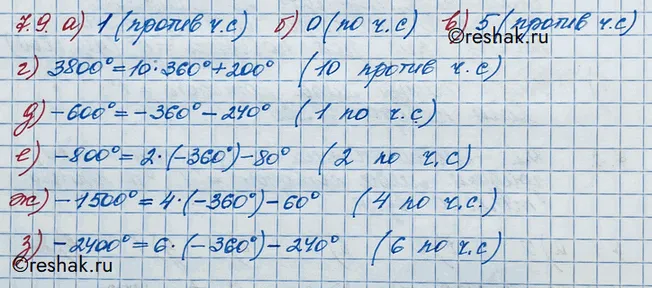 7.9. а) 1 (против ч.с) б) 0 (по ч.с) в) 5 (против ч.с)
©reshak.ru
г) 3800° = 10·360° + 200° (10 против ч.с)
д) -600° = -360° - 240° (1 по ч.с)
е) -800° = 2·(-360°) - 80° (2 по ч.с)
ж) -1500° = 4·(-360°) - 60° (4 по ч.с.)
з) -2400° = 6·(-360°) - 240° (6 по ч.с)
©reshak.ru